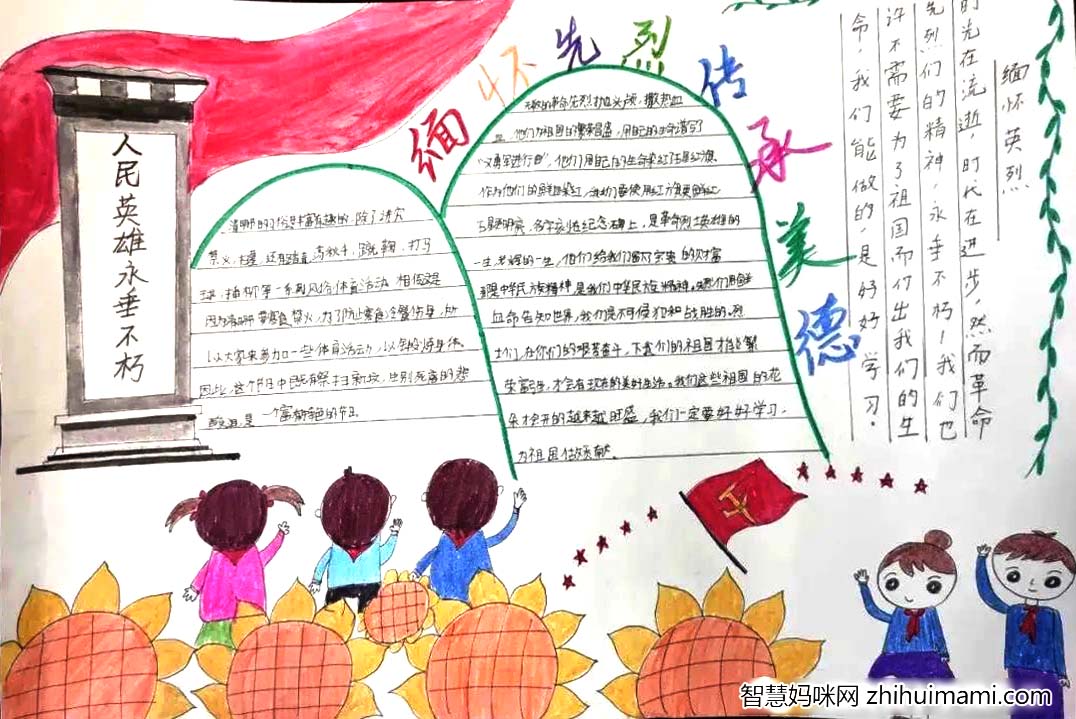 人民英雄永垂不朽
缅怀先烈传承美德
清明节的习俗是丰富有趣的,除了讲究
禁火、扫墓,还有踏青、荡秋千、蹴鞠、打马
球、插柳等一系列风俗体育活动。相传这是
因为清明节要寒食禁火,为了防止寒食冷餐伤身,所
以大家来参加一些体育活动,以锻炼身体。
因此,这个节日中既有祭扫新坟,生别死离的悲
酸泪,是一个富有特色的节日。
无数的革命先烈抛头颅,撒热血
他们为祖国的繁荣昌盛,用自己的生命谱写了
"义勇军进行曲",他们用自己的生命染红了五星红旗。
作为他们的鲜血染红,我们要使用红旗更鲜红
五星更明亮,名字永
一生,光辉的一生,他们给我们留下宝贵的财富
那是中华民族精神是我们中华民族精神。
血命告知世界,我们是不可侵犯和战胜的。烈
士们,在你们的艰苦奋斗,下我们的祖国才能繁
荣富强,才会有现在的美好生活。我们这些祖国的花
朵才开的越来越旺盛,我们一定要好好学习,
为祖国做贡献。
缅怀英烈
时光在流逝,时代在进步,然而革命
先烈们的精神,永垂不朽!我们也
许不需要为了祖国而付出我们的生
命,我们能做的,是好好学习。
智慧妈咪网 zhihuimami.com